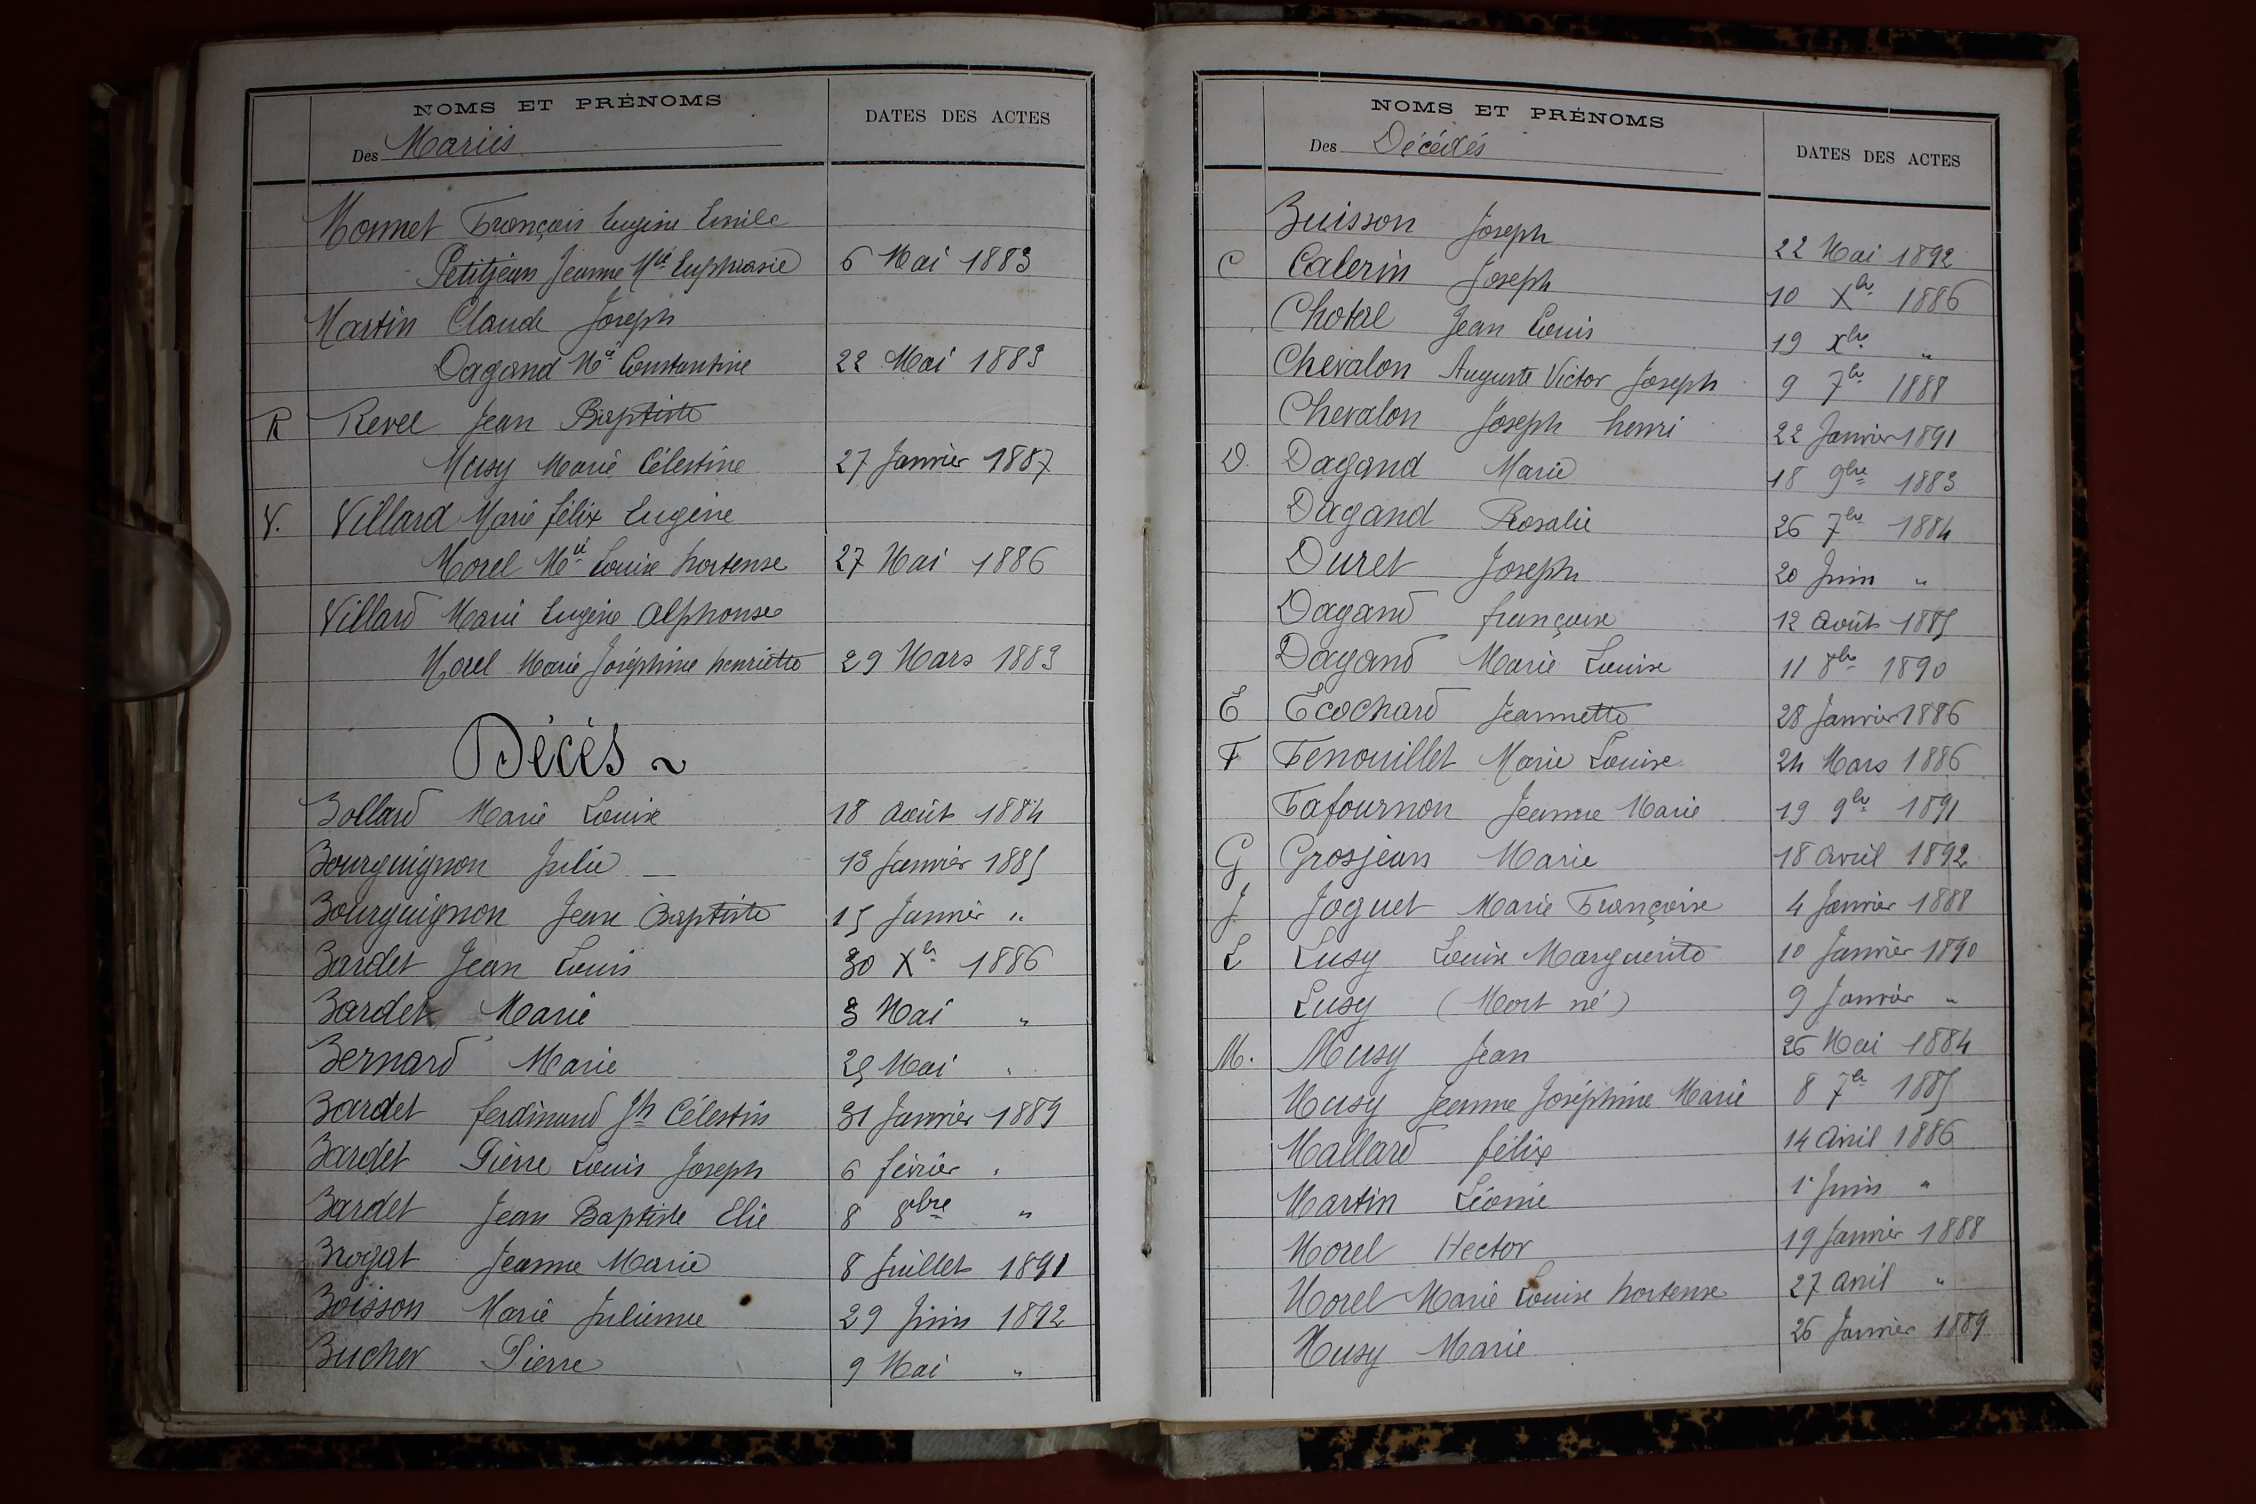 NOMS ET PRÉNOMS
DATES DES ACTES
Des Mariés
Monnet François Eugène Emile
Petitjean Jeanne Mie Euphrasie 6 Mai 1883
Martin Claude Joseph
Dagand Mie Constantine 22 Mai 1883
R Revel Jean Baptiste
Musy Marie Célestine 27 Janvier 1887
V. Villard Marie félix Eugène
Morel Mie Louise hortense 27 Mai 1886
Villard Marie Eugène Alphonse
Morel Marie Joséphine henriette 29 Mars 1883
Décès ~
Bollard Marie Louise 18 Août 1884
Bourguignon Julie 13 Janvier 1885
Bourguignon Jean Baptiste 15 Janvier "
Bardet Jean Louis 30 Xbre 1886
Bardet Marie 3 Mai "
Bernard Marie 25 Mai "
Bardet ferdinand Jh Célestin 31 Janvier 1889
Bardet Pierre Louis Joseph 6 février "
Bardet Jean Baptiste Elie 8 8bre "
Brogat Jeanne Marie 8 Juillet 1891
Boisson Marie Julienne 29 Juin 1892
Bucher Pierre 9 Mai "
NOMS ET PRÉNOMS
DATES DES ACTES
Des Décédés
Buisson Joseph 22 Mai 1892
C Calerin Joseph 10 Xbre 1886
Chotel Jean Louis 19 Xbre "
Chevalon Auguste Victor Joseph 9 7bre 1888
Chevalon Joseph henri 22 Janvier 1891
D. Dagand Marie 18 9bre 1883
Dagand Rosalie 26 7bre 1884
Duret Joseph 20 Juin "
Dagand françoise 12 Août 1885
Dagand Marie Louise 11 8bre 1890
E Ecochard Jeannette 28 Janvier 1886
F Fenouillet Marie Louise 24 Mars 1886
Fafournon Jeanne Marie 19 9bre 1891
G Grosjean Marie 18 Avril 1892
J Joguet Marie Françoise 4 Janvier 1888
L Lusy Louise Marguerite 10 Janvier 1890
Lusy (Mort né) 9 Janvier "
M. Musy Jean 26 Mai 1884
Musy Jeanne Joséphine Marie 8 7bre 1885
Mallard félix 14 Avril 1886
Martin Léonie 1er Juin "
Morel Hector 19 Janvier 1888
Morel Marie Louise hortense 27 Avril "
Musy Marie 26 Janvier 1889